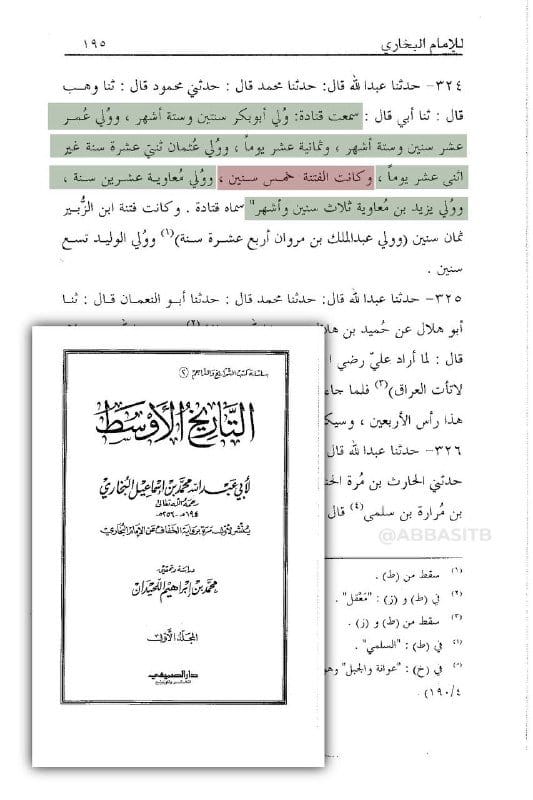 للإمام البخاري
١٩٥
٣٢٤- حدثنا عبدالله قال: حدثنا محمد قال : حدثني محمود قال : ثنا وهب
قال : ثنا أبي قال : سمعت قتادة: وُلي أبوبكر سنتين وستة أشهر ، وولي عُمر
عشر سنين وستة أشهر ، وثمانية عشر يوماً ، وولي عُثمان ثنتي عشرة سنة غير
اثنى عشر يوماً ، وكانت الفتنة خمس سنين ، وولي مُعاوية عشرين سنة ،
وولي يزيد بن مُعاوية ثلاث سنين وأشهر" سماه قتادة . وكانت فتنة ابن الزُّبير
ثمان سنين (وولي عبدالملك بن مروان أربع عشرة سنة)(١) وولي الوليد تسع
سنين .
٣٢٥- حدثنا عبدالله قال: حدثنا محمد قال : حدثنا أبو النعمان قال : ثنا
أبو هلال عن حُميد بن هلال
قال : لما أراد عليّ رضي ا
لاتأت العراق)(٣) فلما جاء
هذا رأس الأربعين ، وسيك
٣٢٦- حدثنا عبدالله قال
حدثني الحارث بن مُرة الحن
بن مُرارة بن سلمى(٤) قال
@ABBASITB
(١) سقط من (ط) .
(٢) في (ط) و (ز) : "مَعْقل" .
(٣) سقط من (ط) و (ز) .
(٤) في (ط) : "السلمي" .
(٥) في (خ) : "عوانة والجبل" وهو
١٩٠/٤)
سلسلة كتب التواريخ والتراجم (٢)
التاريخ الأوسط
لأبي عبد الله محمد بن إسماعيل البخاري
رحمه الله تعالى
١٩٤هـ - ٢٥٦هـ
يُنشر لأول مرة برواية الخفاف عن الإمام البخاري
دراسة وتحقيق
محمد بن إبراهيم اللحيدان
المجلد الأول
دار الصميعي
للنشر والتوزيع